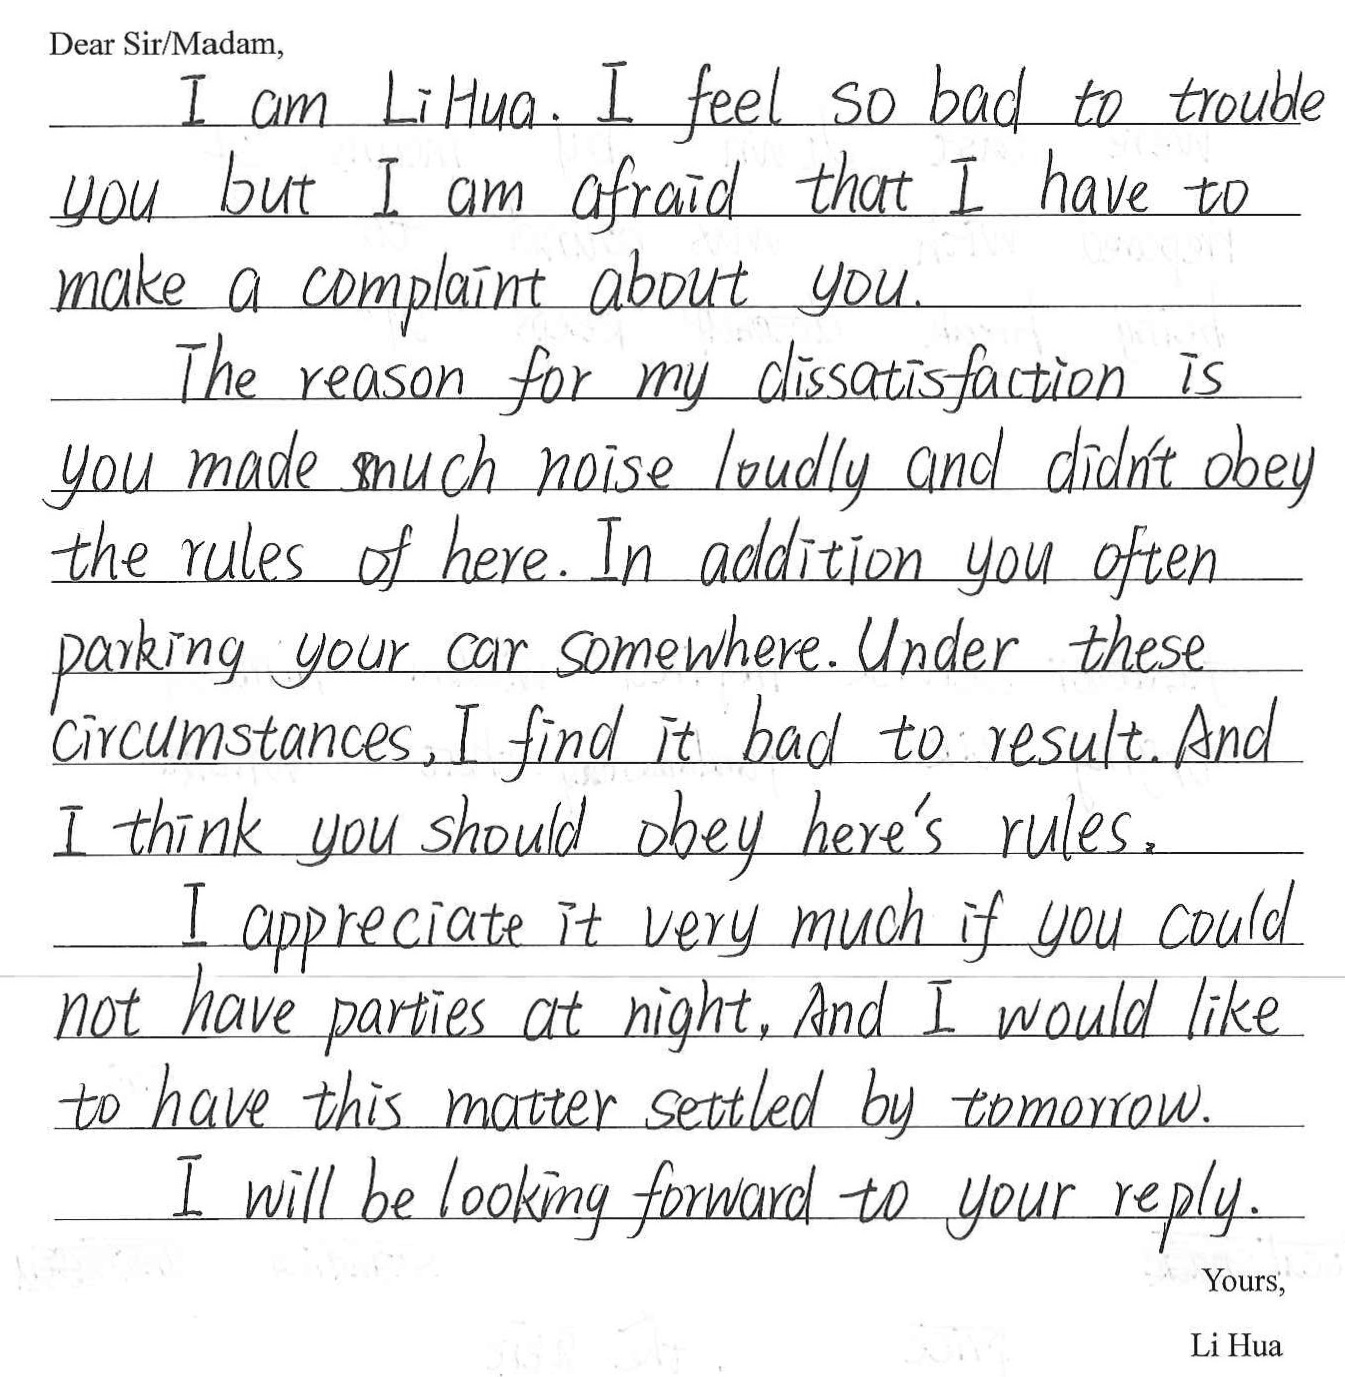 Dear Sir/Madam,
I am Li Hua. I feel so bad to trouble
you but I am afraid that I have to
make a complaint about you.
The reason for my dissatisfaction is
you made much noise loudly and didn't obey
the rules of here. In addition you often
parking your car somewhere. Under these
circumstances, I find it bad to result. And
I think you should obey here's rules.
I appreciate it very much if you could
not have parties at night, And I would like
to have this matter settled by tomorrow.
I will be looking forward to your reply.
Yours,
Li Hua